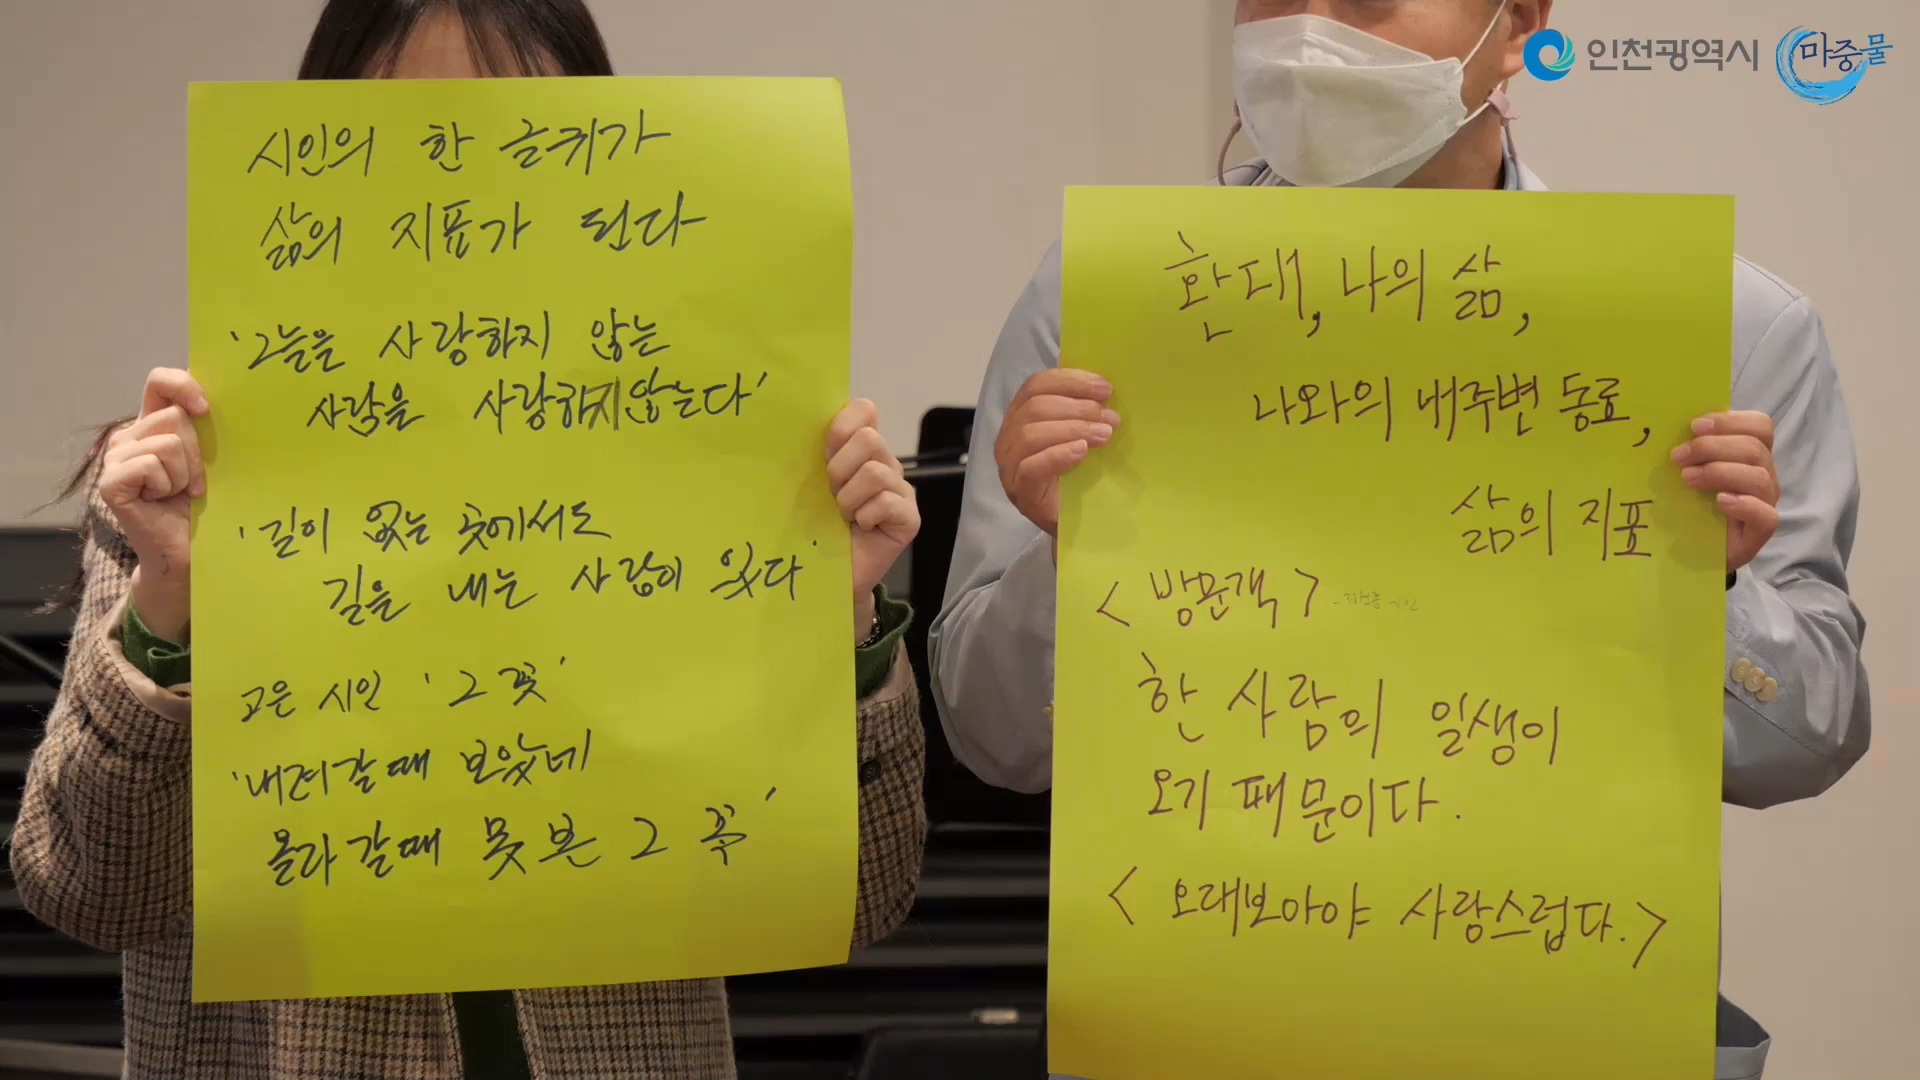 인천광역시 마중물
시인의 한 글귀가
삶의 지표가 된다
'그늘을 사랑하지 않는
사람을 사랑하지않는다'
'길이 없는 곳에서도
길을 내는 사람이 있다'
고은 시인 '그 꽃'
'내려갈때 보았네
올라갈때 못 본 그 꽃'
환대, 나의 삶,
나와의 내주변 동료,
삶의 지표
<방문객>
한 사람의 일생이
오기 때문이다.
<오래보아야 사랑스럽다.>